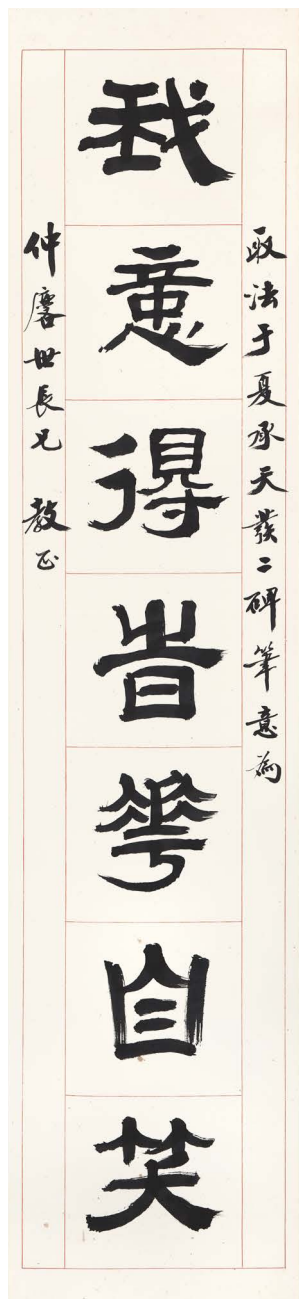 取法于夏承天發二碑筆意為
我意得旹華自笑
仲麐世長兄 教正